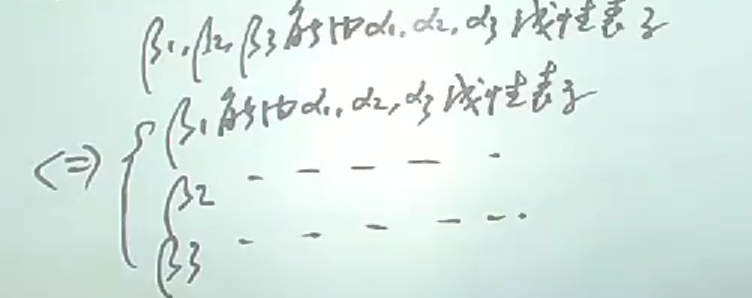 β1,β2,β3能由α1,α2,α3线性表示
<=> { β1能由α1,α2,α3线性表示
β2 - - - - -
β3 - - - - - -.